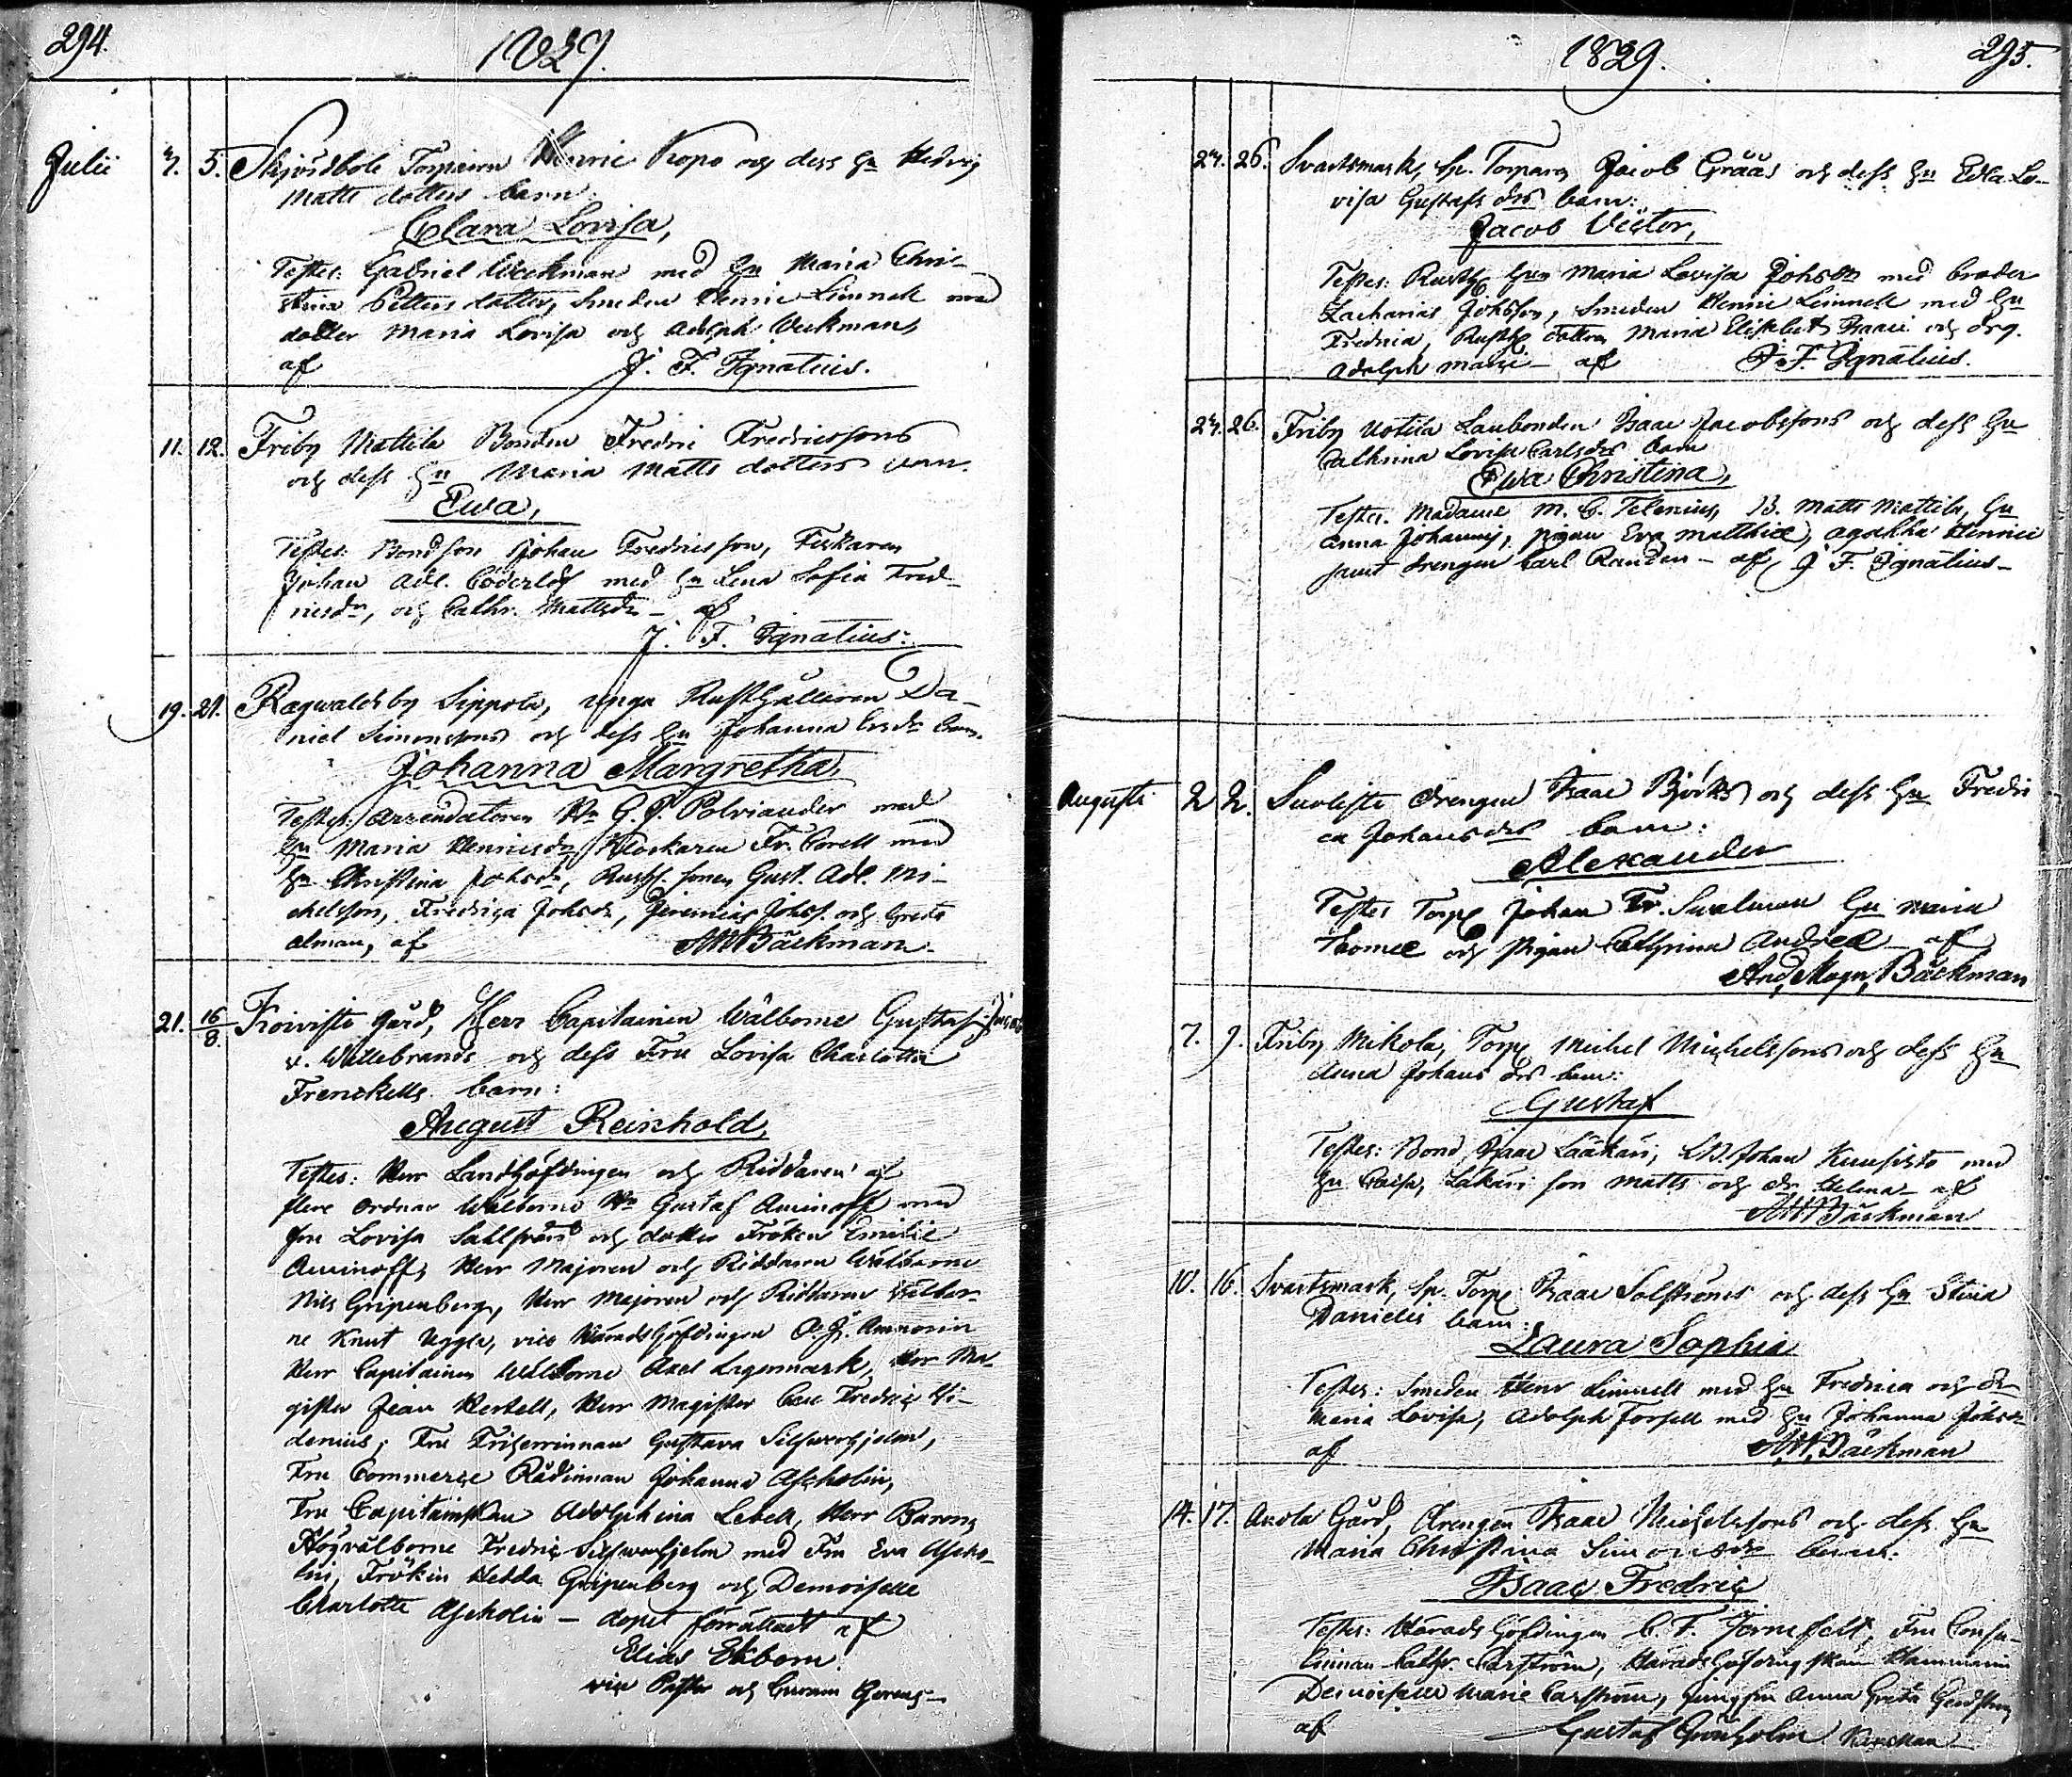 294.
1829.
Julii 3. 5. Skjördbole Torparen Henric Kopo och dess Hu Hedvig
Matts dotters barn
Clara Lovisa,
Testes: Gabriel Weckman med Hu Maria Chri-
stina Petters dotter, Smeden Henric Limnell med
dotter Maria Lovisa och Adolph Weckman,
af J. F. Ignatius.
11. 12. Friby Mattila Bonden Fredric Fredricssons
och dess Hu Maria Matts dotters barn.
Ewa,
Testes: Bondson Johan Fredricsson, Fiskaren
Johan Adl. Cöderlöf med Hu Lena Sofia Fred-
ricsdr, och Cathr. Mattsdr - af
J. F. Ignatius.
19. 21. Ragwaldsby Sippola, unga Rusthållaren Da-
niel Simonssons och dess Hu Johanna Ersdr barn.
Johanna Margretha,
Testes: Arrendatoren Hr G. J. Polviander med
Hu Maria Henricsdr, Klockaren Fr. Corell med
Hu Christina Johsdr, Rusth. sonen Gust. Adl. Mi-
chelsson, Fredrica Johsdr, Jeremias Johss. och Greta
Alman, af AMBäckman.
21. 16/8. Koivisto Gård, Herr Capitainen Wälborne Gustaf
v. Willebrands och dess Fru Lovisa Charlotta
Frenckells barn:
August Reinhold,
Testes: Herr Landshöfdingen och Riddaren af
flere Ordnar Wälborne Hr Gustaf Aminoff med
fru Lovisa och dotter Fröken Emilie
Aminoff, Herr Majoren och Riddaren Wälborne
Nils Gripenberg, Herr Majoren och Riddaren Wälbor-
ne Knut Uggla, vice Häradshöfdingen O. J. Ammorin
Herr Capitainen Wälborne Axel Lagermark, Herr Ma-
gister Jean Hertell, Herr Magister Carl Fredric Hi-
denius, Fru Friherrinnan Gustava Silfwerhjelm,
Fru Commerce Rådinnan Johanna Ascholin,
Fru Capitainskan Adolphina Lebell, Herr Baron,
Högvälborne Fredric Silfwerhjelm med Fru Eva Ascho-
lin, Fröken Hedda Gripenberg och Demoiselle
Charlotte Ascholin - dopet förrättadt af
Elias Ekbom.
vice Pastor och
1829.
295.
24. 26. Svartsmark, Sp. Torparen Jacob Gräås och dess Hu Edla Lo-
visa Gustafs drs barn:
Jacob Victor,
Testes: Rusth. Hun Maria Lovisa Johsdr med broder
Zacharias Johsson, Smeden Henric Limnell med Hu
Fredrica, Rusth. dottren Maria Elisabet Isaaci och drg.
Adolph - af J. F. Ignatius.
24. 26. Friby Uotila Lanbonden Isaac Jacobssons och dess Hu
Cathrina Lovisa Carlsdrs barn
Ewa Christina,
Testes. Madame M. C. Telenius, B. Matts Mattila, Hu
Anna Johannis, pigan Eva Matthiæ, Agatha Henrici
samt drengen Carl Randen - af J F. Ignatius -
Augusti 2 2. Suoliste Drengen Isaac Björks och dess Hu Fredri
ca Johansdrs barn:
Alexander
Testes Torp. Johan Fr. Swalman Hu Maria
Thomæ och pigan Cathrina Andreæ - af
And, Magn, Bäckman
7. 9. Friby Mikola, Torp. Michel Michelssons och dess Hu
Anna Johans drs barn:
Gustaf
Testes: Bond. Isaac Lääkäri, LB. Johan Kuusisto med
Hu Caisa, Läkäri son Matts och dr Helena - af
AMBäckman
10. 16. Svartsmark, Sp. Torp. Isaac Solströms och dess Hu Stina
Danielis barn:
Laura Sophia
Testes: Smeden Henr Limnell med Hu Fredrica och dr
Maria Lovisa, Adolph Forsell med Hu Johanna Johsdr
af AMBäckman
14. 17. Anola Gård, Drengen Isaac Michelssons och dess Hu
Maria Christina Simonsdrs barn.
Isaac Fredric
Testes: Häradshöfdingen C. F. Jernefelt, Fru Consu-
linnan Cathr. Carström, Häradshöfdingskan Hammarin
Demoiselle Marie Carström, Jungfru Anna Greta
af Gustaf Grönholm